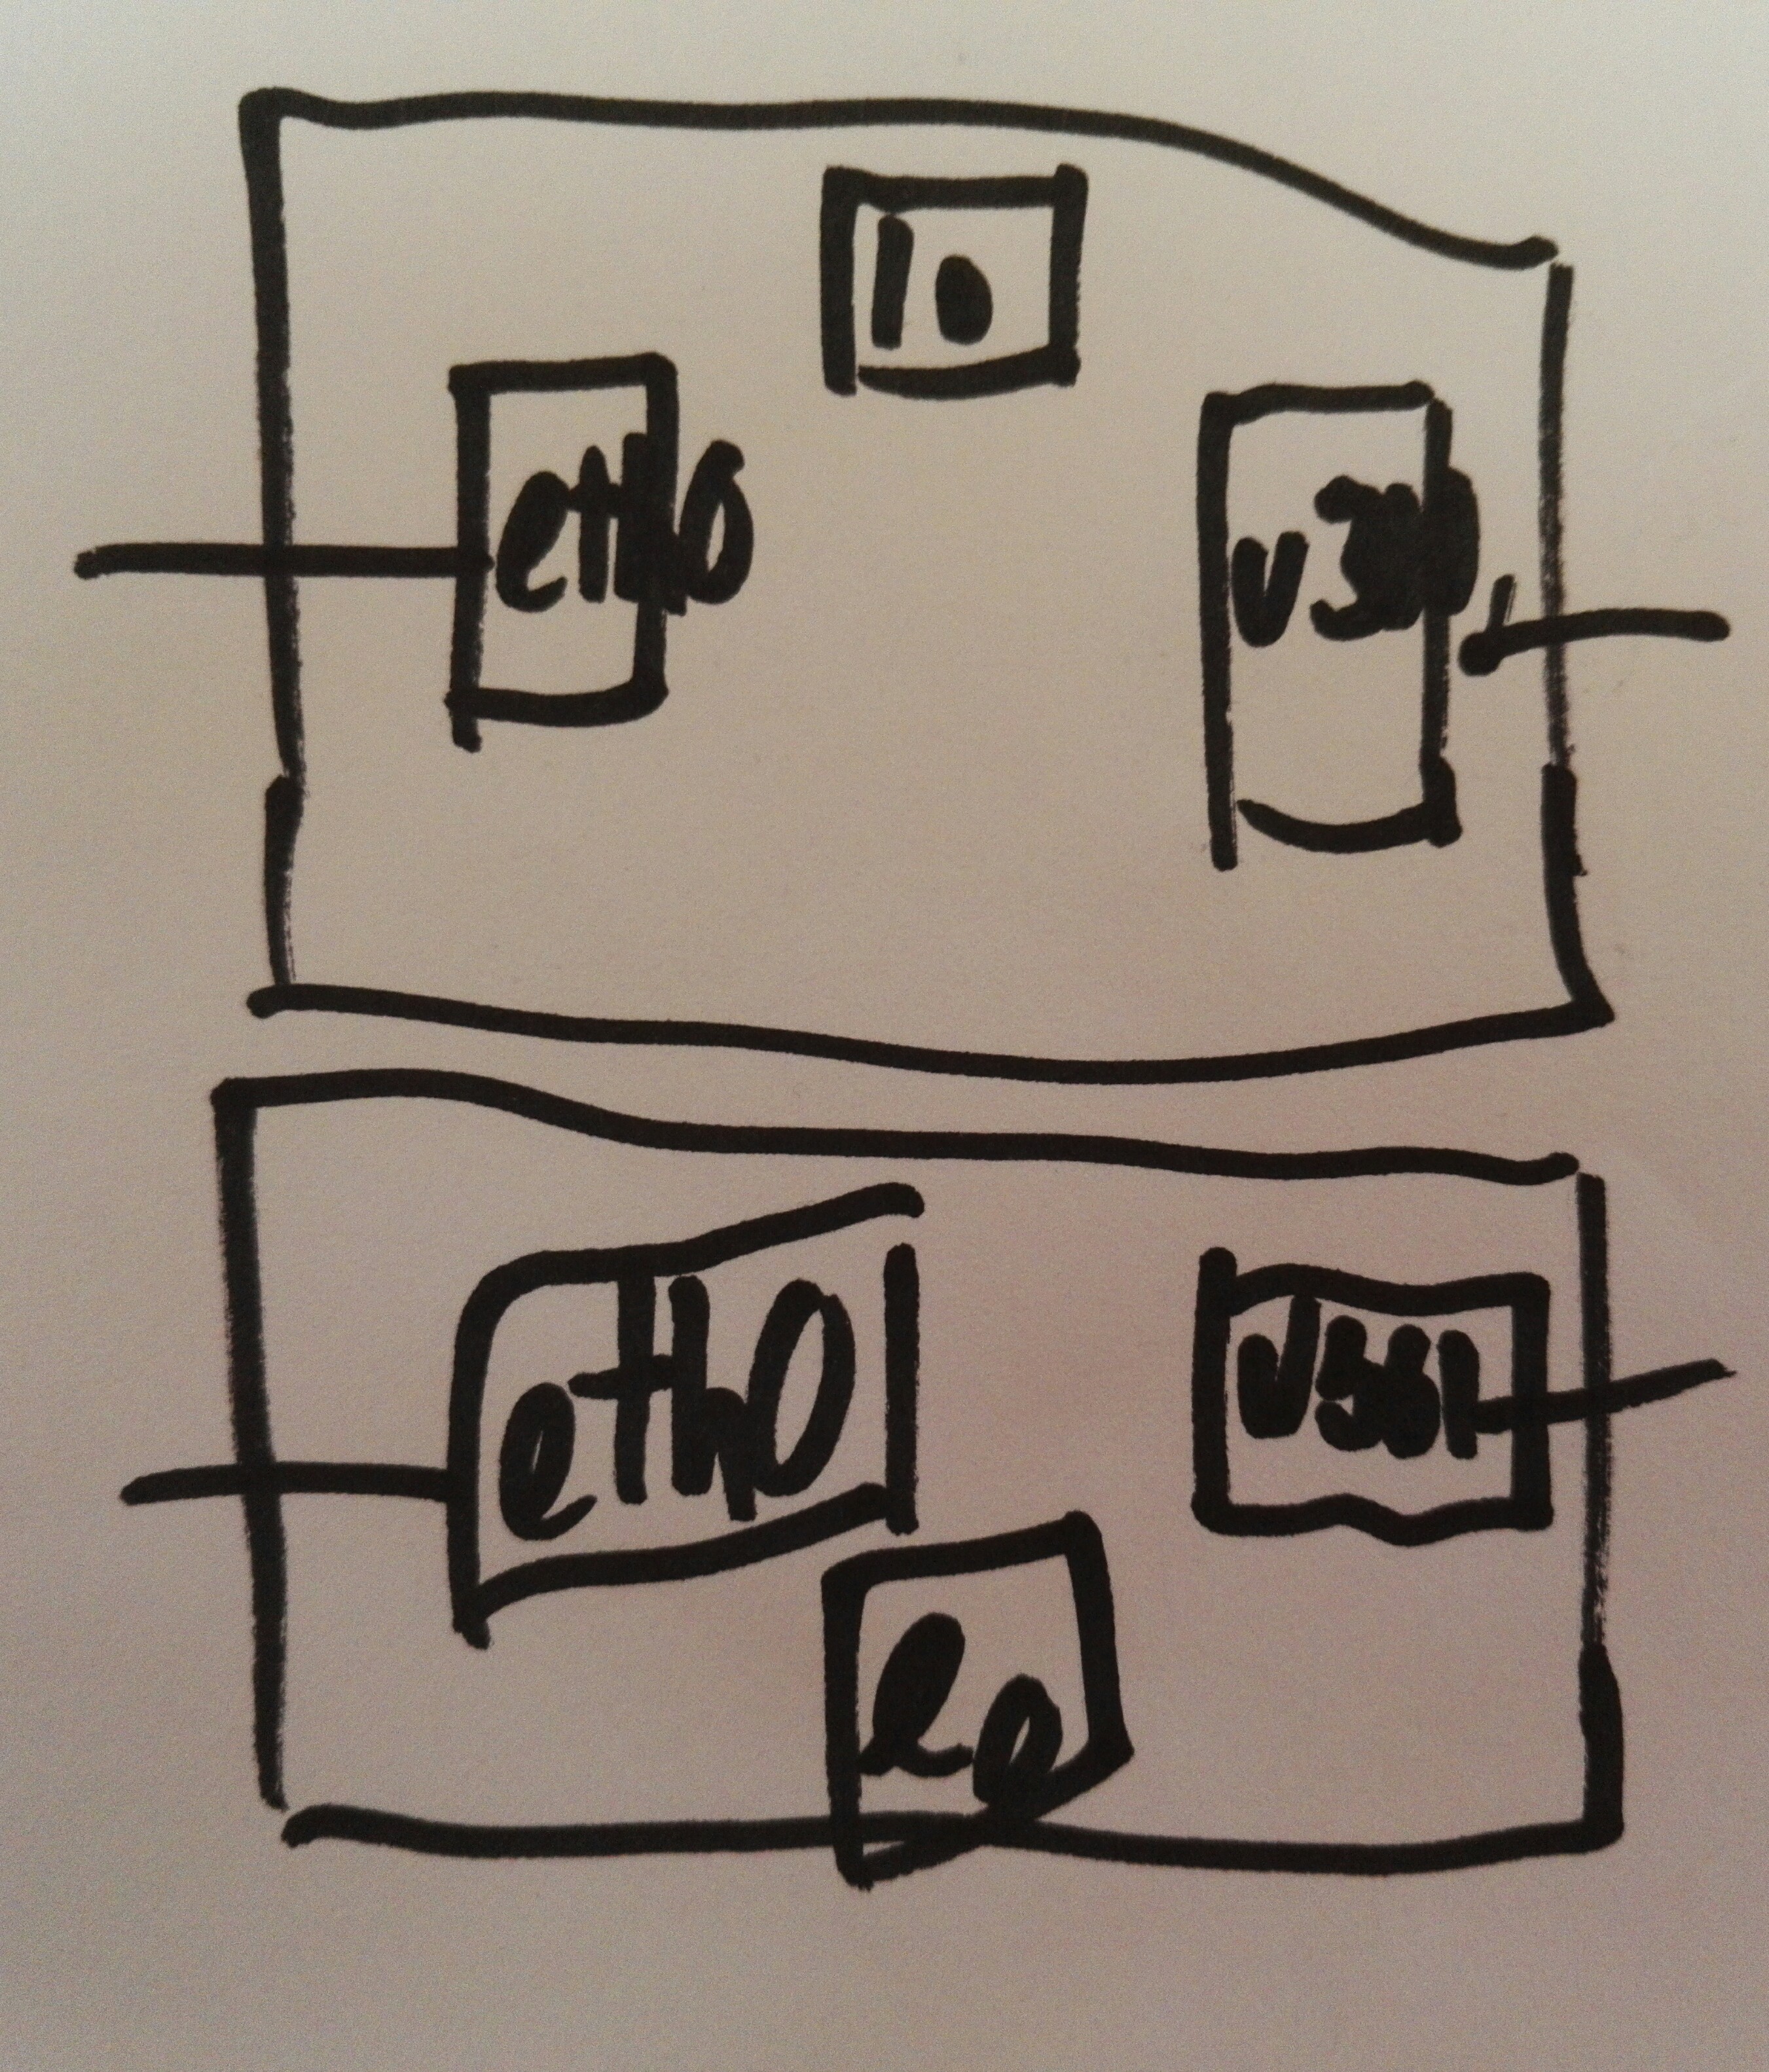 lo
eth0
eth0
v561
lo